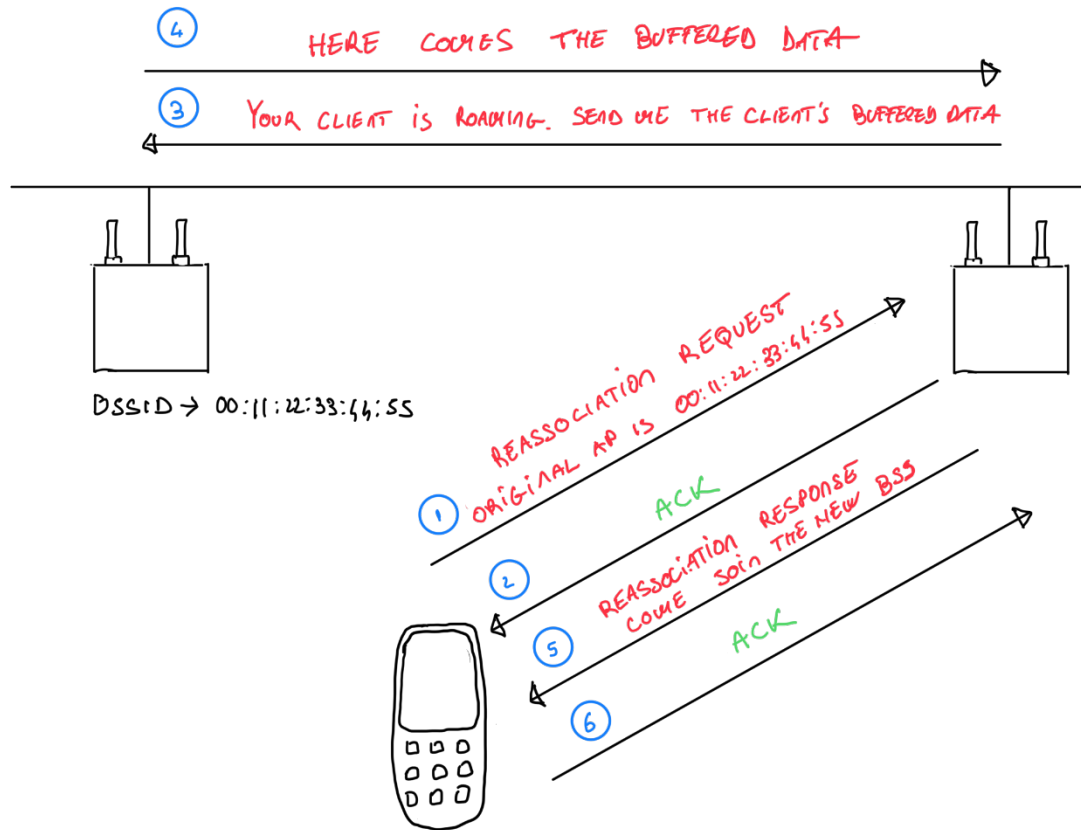 4
HERE COMES THE BUFFERED DATA
3
YOUR CLIENT IS ROAMING. SEND ME THE CLIENT'S BUFFERED DATA
BSSID → 00:11:22:33:44:55
1
REASSOCIATION REQUEST
ORIGINAL AP IS 00:11:22:33:44:55
2
ACK
5
REASSOCIATION RESPONSE
COME JOIN THE NEW BSS
6
ACK